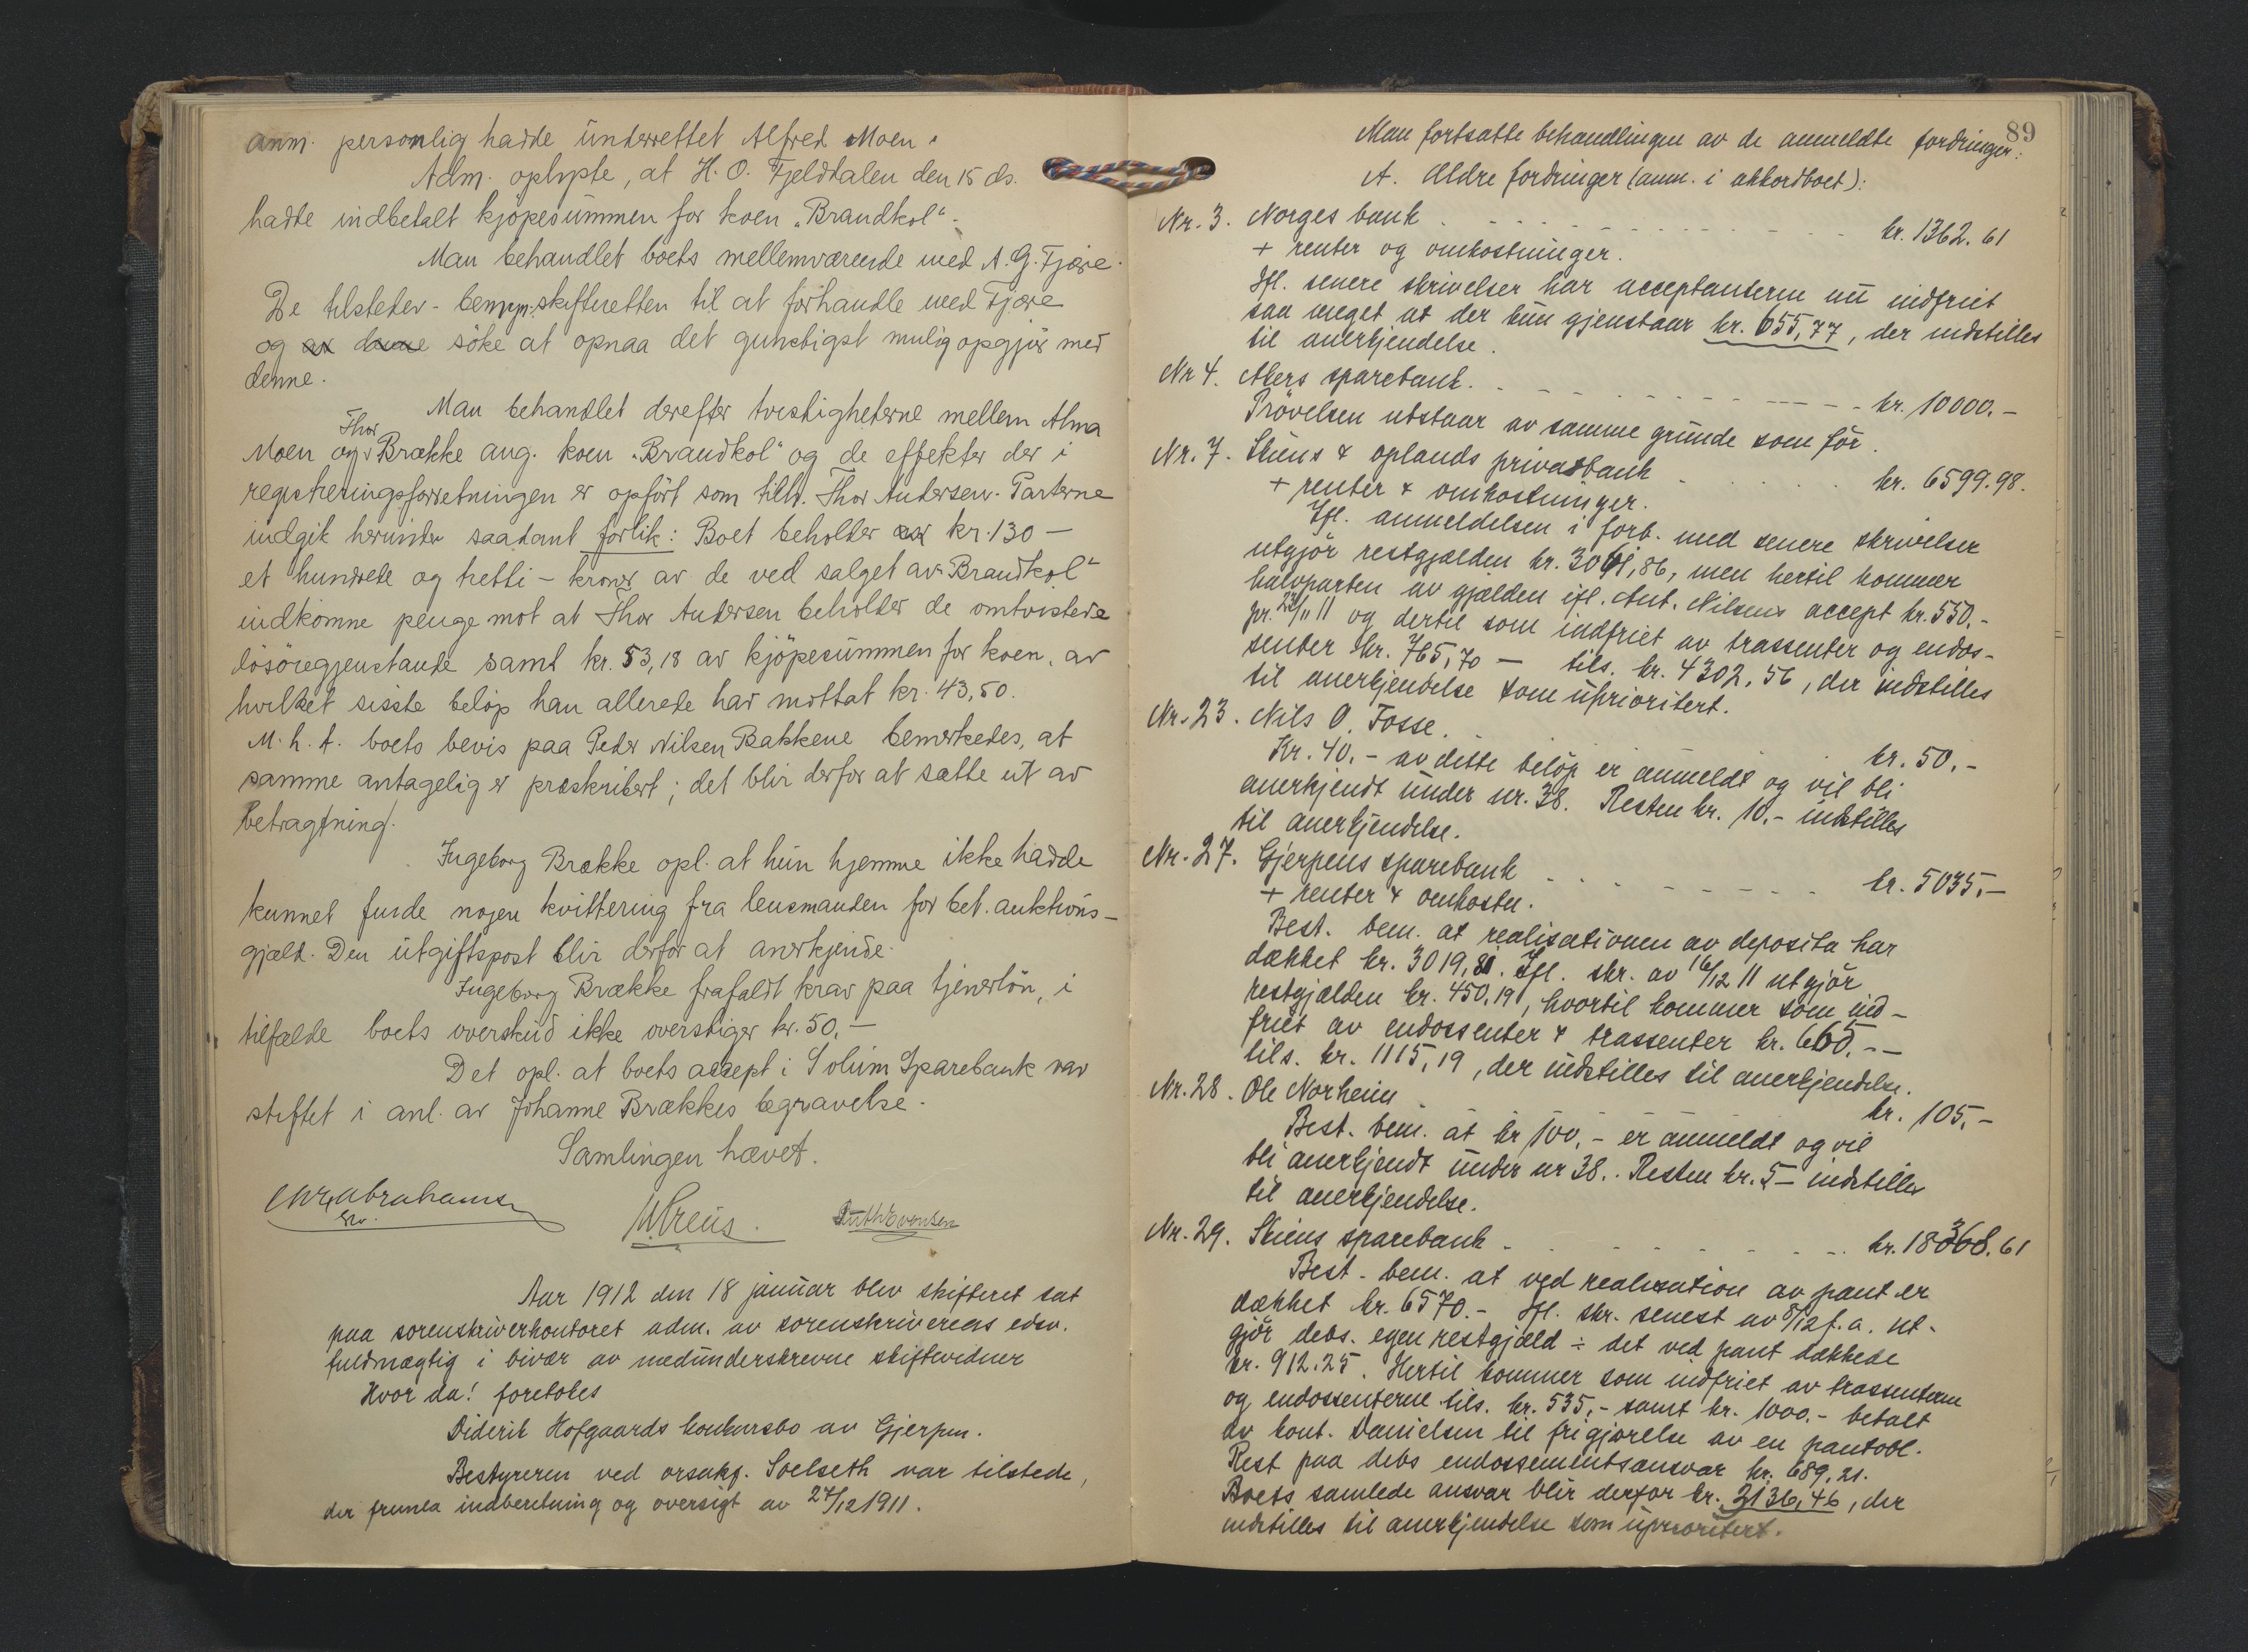 anm. personlig hadde underrettet Alfred Moen.
Adm. oplyste, at H. O. Fjeldtalen den 15 ds.
hadde indbetalt kjöpesummen for koen "Brandkol".
Man behandlet boets mellemværende med A. G. Fjære.
De tilstedev. bemyn. skifteretten til at forhandle med Fjære
og av denne söke at opnaa det gunstigst mulig opgjör med
denne.
Man behandlet derefter tvistigheterne mellem Alma
Moen og Thor Brække ang. koen "Brandkol" og de effekter der i
registreringsforretningen er opfört som tilh. Thor Andersen. Parterne
indgik herunder saadant forlik: Boet beholder av kr. 130 —
et hundrede og tretti - kroner av de ved salget av "Brandkol"
indkomne penge mot at Thor Andersen beholder de omtvistede
lösöregjenstande samt kr. 53,18 av kjöpesummen for koen, av
hvilket sisste belöp han allerede har mottat kr. 43,50.
M. h. t. boets bevis paa Peder Nilsen Bakkene bemerkedes, at
samme antagelig er præskribert; det blir derfor at sætte ut av
betragtning.
Ingeborg Brække opl. at hun hjemme ikke hadde
kunnet finde nogen kvittering fra lensmanden for bet. auktions-
gjæld. Den utgiftspost blir derfor at anerkjende.
Ingeborg Brække frafaldt krav paa tjenerlön, i
tilfælde boets overskud ikke overstiger kr. 50,—
Det opl. at boets accept i Solum Sparebank var
stiftet i anl. av Johanne Brækkes begravelse.
Samlingen hævet.
Chr. Abrahamsen
Ruth Evensen
Aar 1912 den 18 januar blev skifteret sat
paa sorenskriverkontoret adm. av sorenskriverens edsv.
fuldmægtig i bivær av medunderskrevne skiftevidner
Hvor da! foretokes
Diderik Hofgaards konkursbo av Gjerpen.
Bestyreren ved orsakf. Soelseth var tilstede,
der fremla indberetning og oversigt av 27/12 1911.
89
Man fortsatte behandlingen av de anmeldte fordringer:
A. Ældre fordringer (anm. i akkordboet):
Nr. 3. Norges bank kr. 1362.61
+ renter og omkostninger.
Ifl. senere skrivelser har acceptanterne nu indfriet
saa meget at der kun gjenstaar kr. 655,77, der indstilles
til anerkjendelse.
Nr 4. Akers sparebank. kr. 10000.-
Prövelsen utstaar av samme grunde som för.
Nr. 7. Skiens & oplands privatbank kr. 6599.98.
+ renter & omkostninger.
Ifl. anmeldelsen i forb. med senere skrivelser
utgjör restgjælden kr. 3061,86, men hertil kommer
halvparten av gjælden ifl. Ant. Nilsens accept kr. 550.-
pr. /11 11 og dertil som indfriet av trassenter og endos-
senter kr. 765,70 — tils. kr. 4302,56, der indstilles
til anerkjendelse som uprioritert.
Nr. 23. Nils O. Fosse. kr. 50.-
Kr. 40.- av dette belöp er anmeldt og vil bli
anerkjendt under nr. 38. Resten kr. 10.- indstilles
til anerkjendelse.
Nr. 27. Gjerpens sparebank kr. 5035.—
+ renter & omkostn.
Best. bem. at realisationen av deposita har
dækket kr. 3019,81. Ifl. skr. av 16/12 11 utgjör
restgjælden kr. 450,19, hvortil kommer som ind-
friet av endossenter & trassenter kr. 665.--
tils. kr. 1115,19, der indstilles til anerkjendelse.
Nr. 28. Ole Norheim kr. 105.-
Best. bem. at kr 100,- er anmeldt og vil
bli anerkjendt under nr 38. Resten kr. 5- indstilles
til anerkjendelse.
Nr. 29. Skiens sparebank kr. 18368.61
Best. bem. at ved realisation av pant er
dækket kr. 6570.- Ifl. skr. senest av 8/12 f.a. ut-
gjör debs. egen restgjæld ÷ det ved pant dækkede
kr. 912.25. Hertil kommer som indfriet av trassenterne
og endossenterne tils. kr. 535,- samt kr. 1000.- betalt
av kont. Danielsen til frigjörelse av en pantobl.
Rest paa debs endossementsansvar kr. 689,21.
Boets samlede ansvar blir derfor kr. 3136,46, der
indstilles til anerkjendelse som uprioritert.